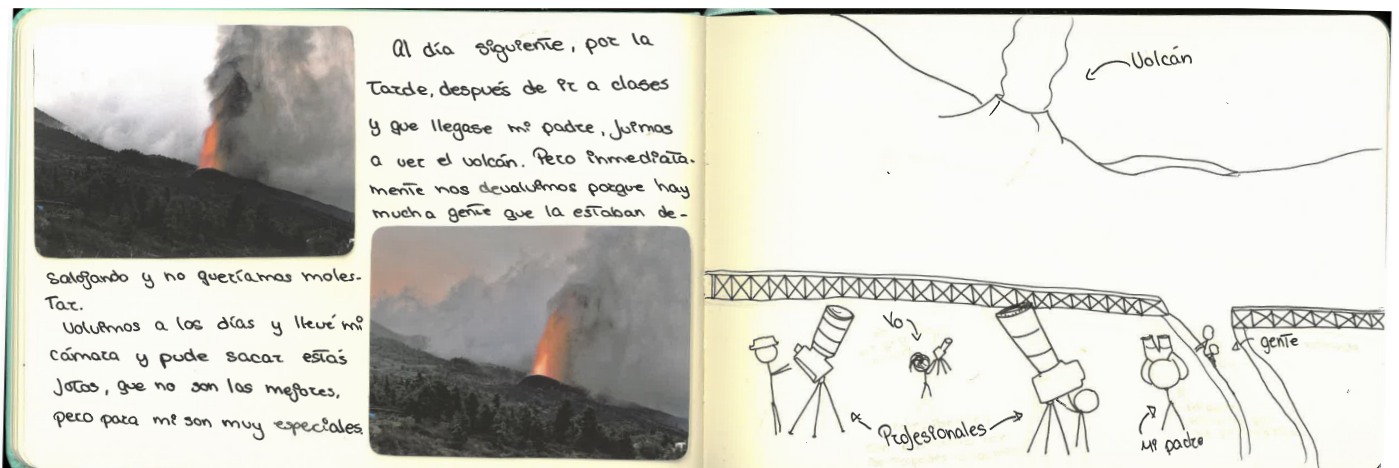 Al día siguiente, por la
Tarde, después de ir a clases
y que llegase mi padre, fuimos
a ver el volcán. Pero inmediata-
mente nos devolvimos porque hay
mucha gente que la estaban de-
salojando y no queríamos moles-
Tar.
Volvimos a los días y llevé mi
cámara y pude sacar estás
fotos, que no son las mejores,
pero para mi son muy especiales.
Volcán
Yo
gente
Profesionales
Mi padre